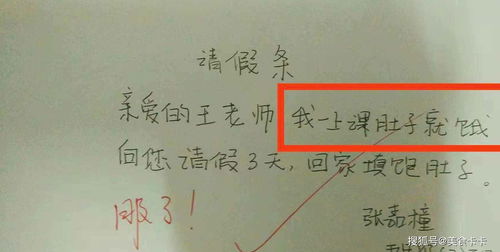 请假条
亲爱的王老师 我一上课肚子就饿
向您请假3天,回家填饱肚子。
服了!
张嘉撞
搜狐号@美食卡卡